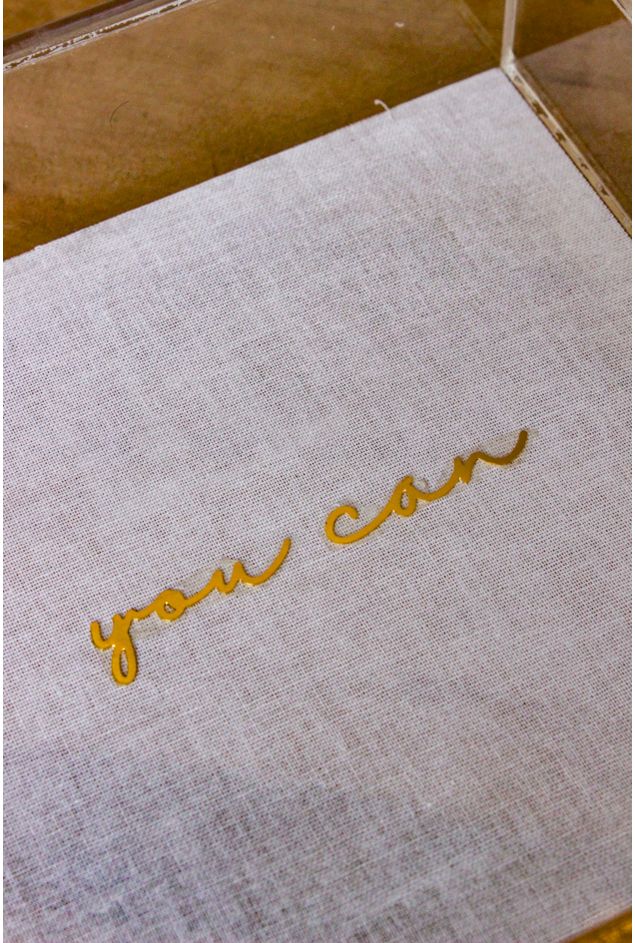 you can